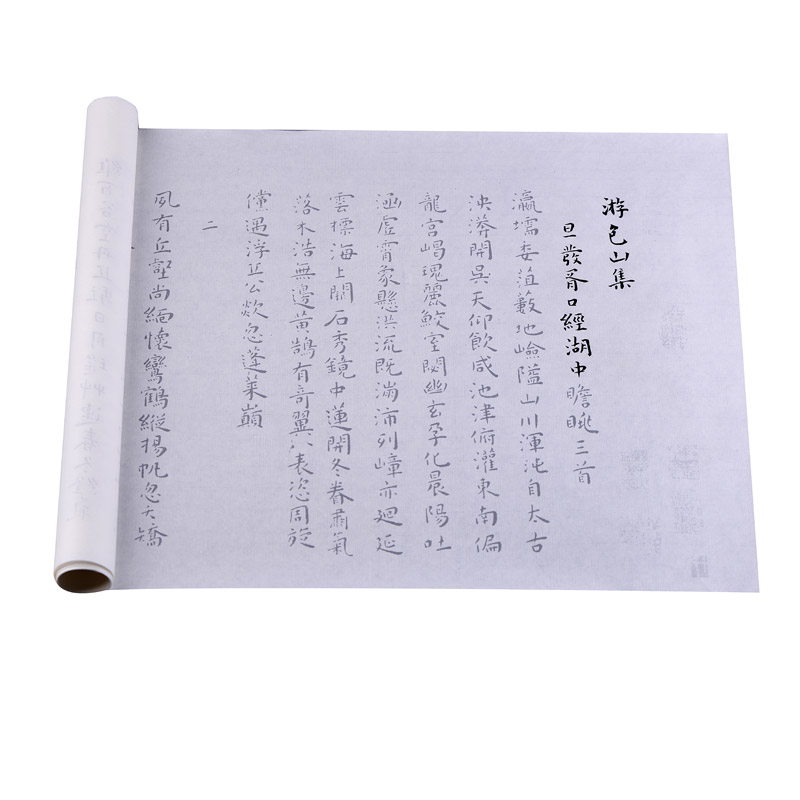 游包山集
旦發胥口經湖中瞻眺三首
瀛壖委菹藪地嶮隘山川渾沌自太古
泱漭開吳天仰飲咸池津俯灌東南偏
龍宮嵑瑰麗鮫室閟幽玄孕化晨陽吐
涵虛霄象懸洪流既滿沛列嶂亦迴延
雲標海上關石秀鏡中蓮開冬眷肅氣
落木浩無邊黃鵠有奇翼八表恣周旋
儻遇浮丘公欻忽蓬萊巔
二
夙有丘壑尚緬懷鸞鶴縱揚帆忽夭矯